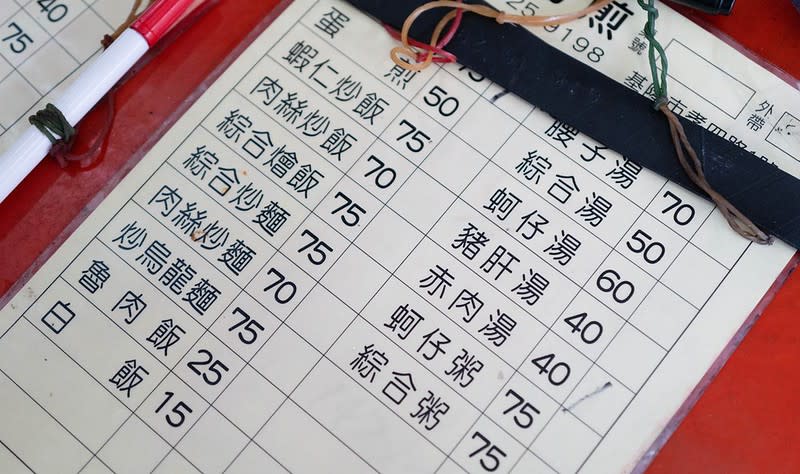 40
75
煎
25 9198
號
外帶
基隆市孝四路
蛋 煎 50
蝦仁炒飯 75
肉絲炒飯 70
綜合燴飯 75
綜合炒麵 75
肉絲炒麵 70
炒烏龍麵 75
魯肉飯 25
白飯 15
腰子湯 70
綜合湯 50
蚵仔湯 60
豬肝湯 40
赤肉湯 40
蚵仔粥 75
綜合粥 75